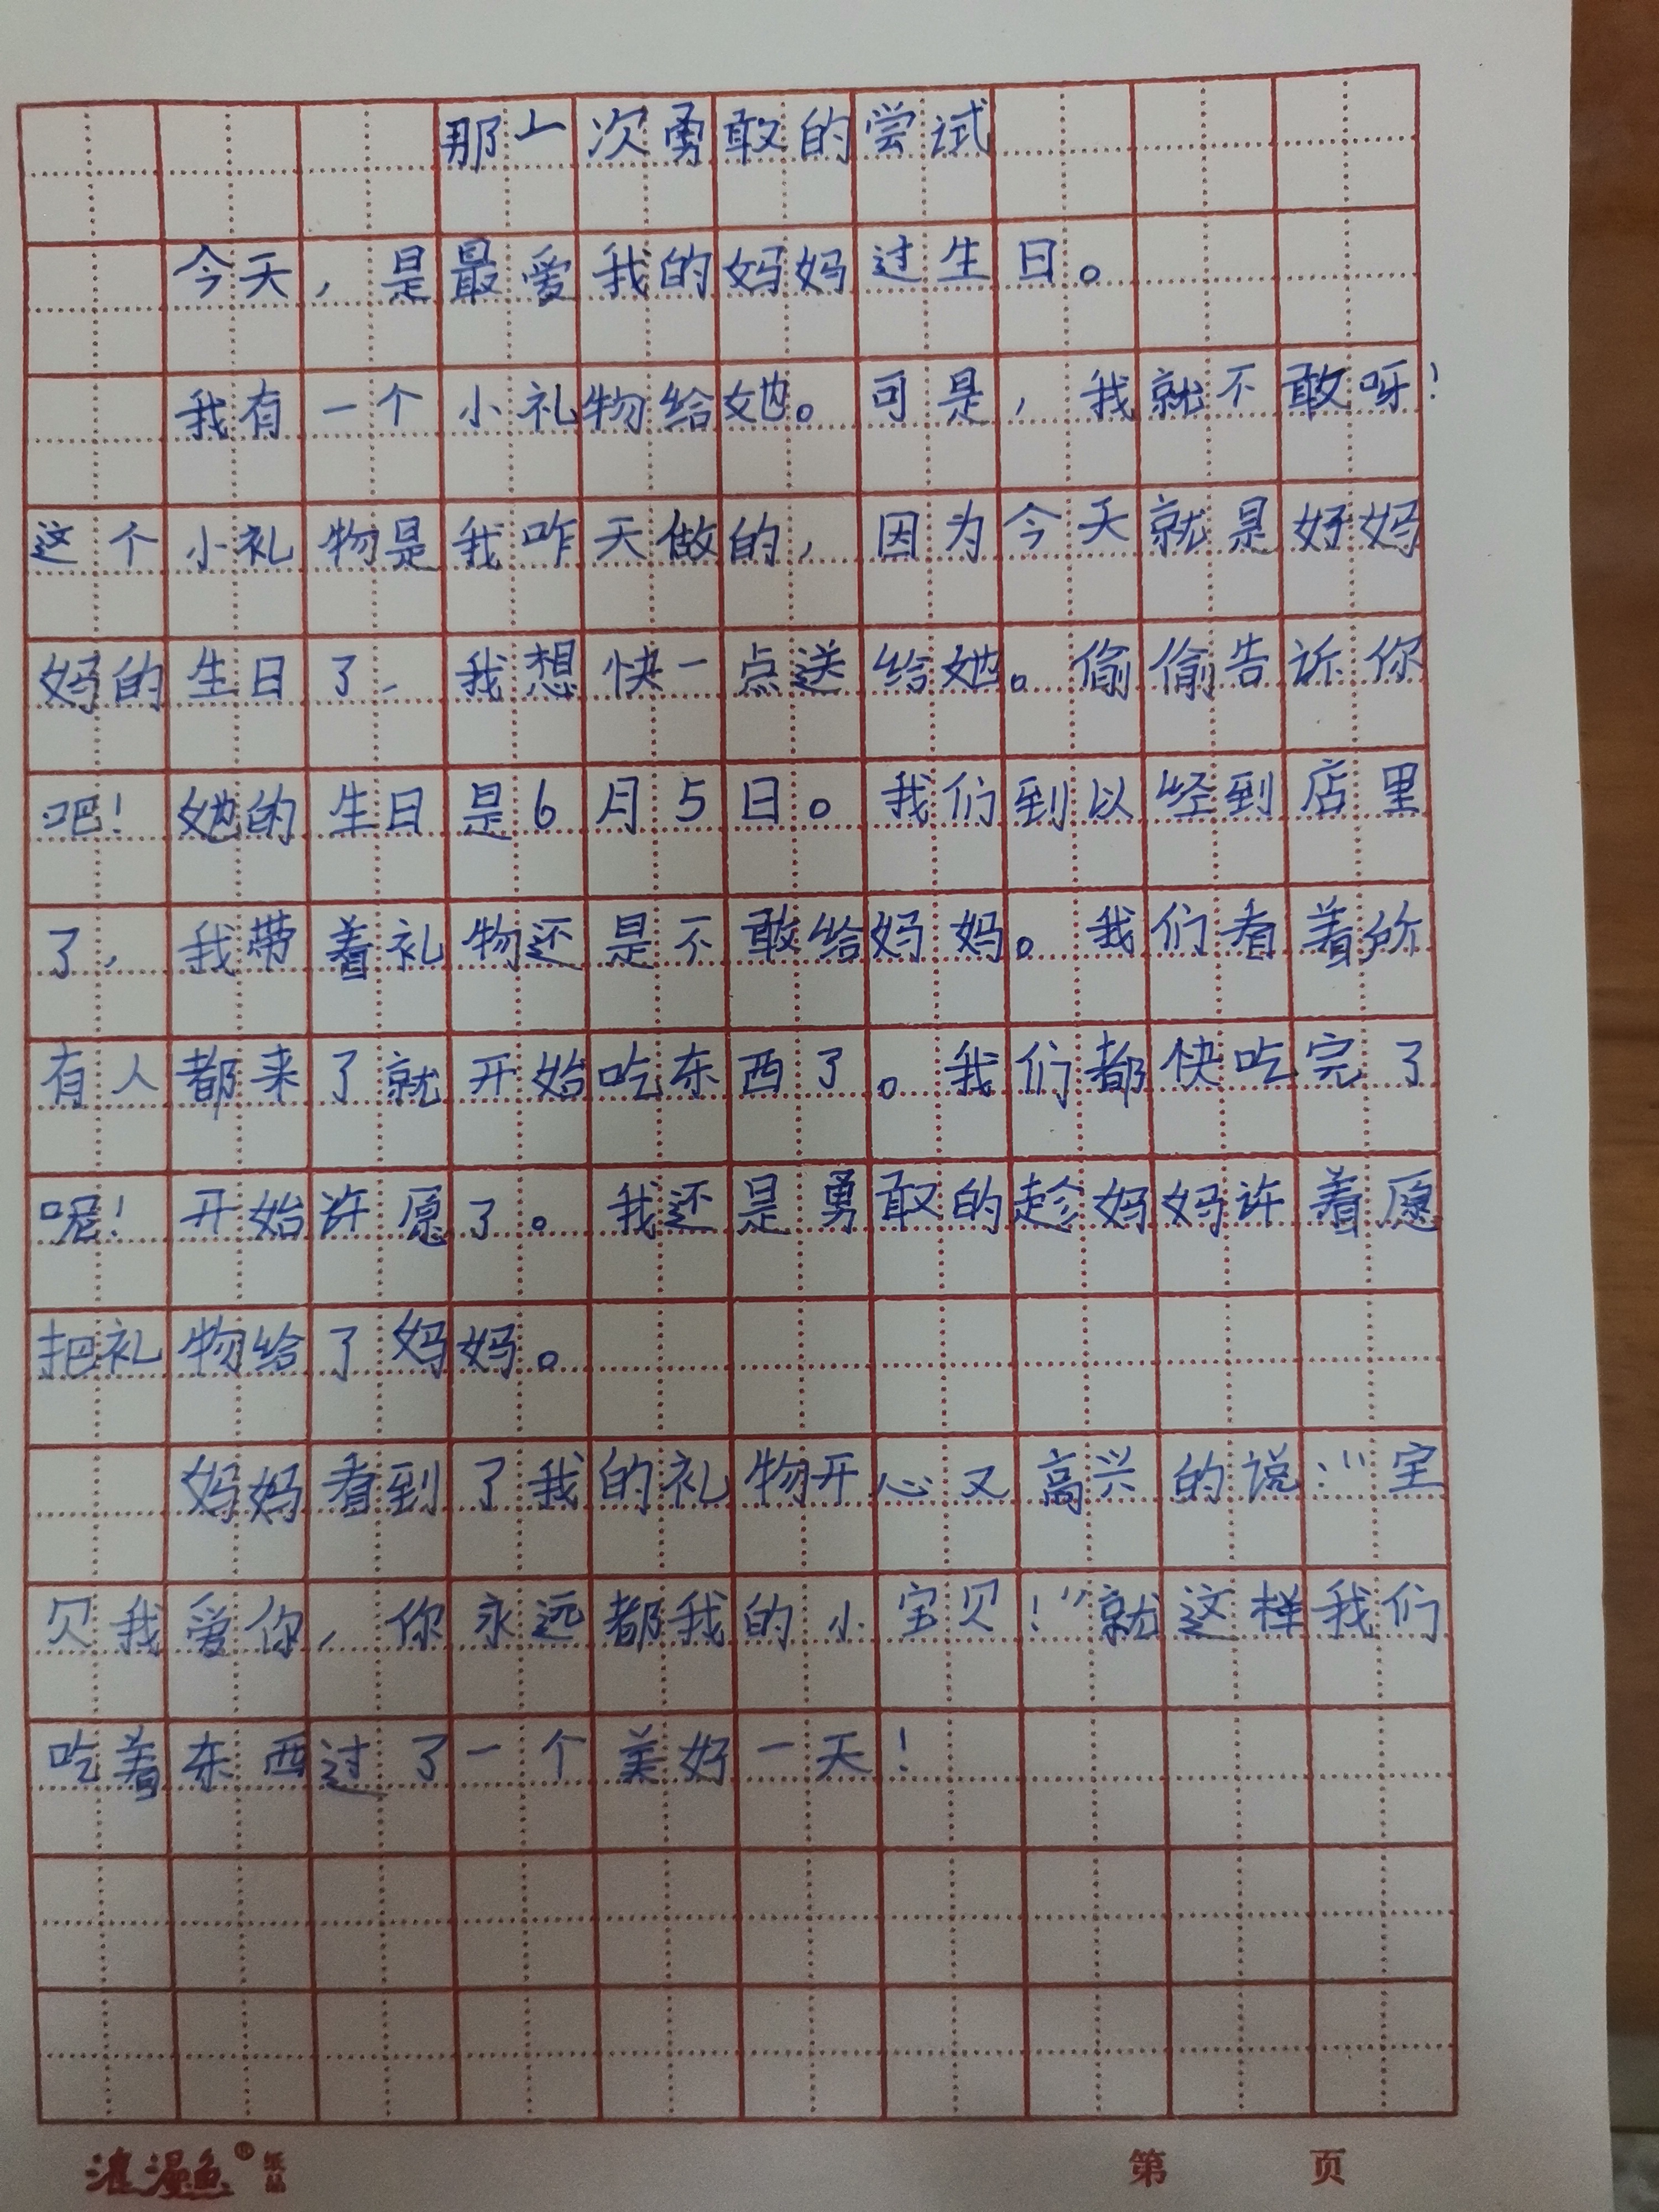 那一次勇敢的尝试
今天，是最爱我的妈妈过生日。
我有一个小礼物给她。可是，我就不敢呀！
这个小礼物是我咋天做的，因为今天就是好妈
妈的生日了，我想快一点送给她。偷偷告诉你
吧！她的生日是6月5日。我们到以经到店里
了，我带着礼物还是不敢给妈妈。我们看着所
有人都来了就开始吃东西了。我们都快吃完了
呢！开始许愿了。我还是勇敢的趁妈妈许着愿
把礼物给了妈妈。
妈妈看到了我的礼物开心又高兴的说：“宝
贝我爱你，你永远都我的小宝贝！”就这样我们
吃着东西过了一个美好一天！
浪漫鱼®纸品
第 页